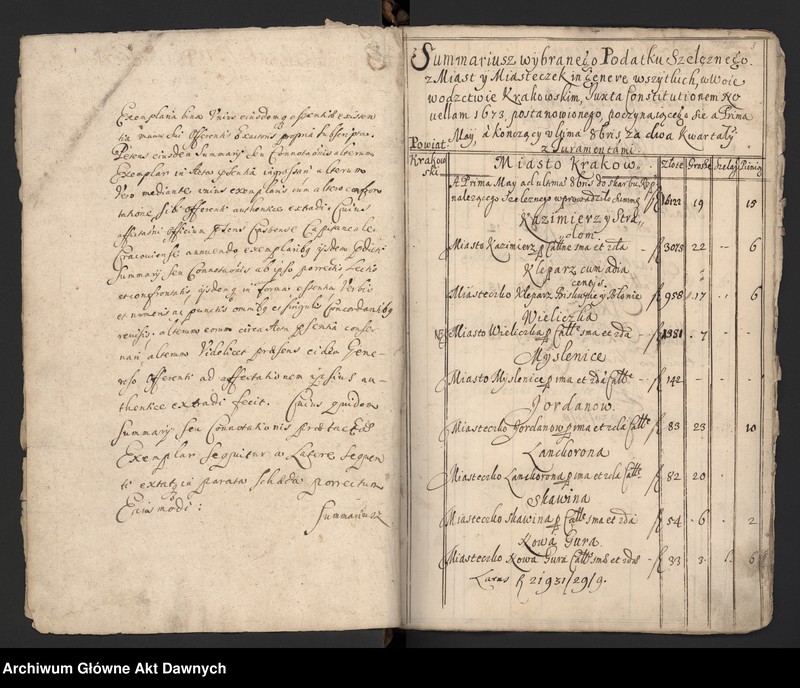 Exemplaria bina Unius eiusdemq essentiæ existen
tia manu sui Offerentis
Petens eiusdem Summary seu Connotaōnis alterum
Exemplar in Acta psentia ingrossari alterum
Vero mediante unius exemplaris cum altero confron
tatione sibi offerenti authentice extradi. Cuius
affectaōni officium præsens Castrense Capitaneale
Cracoviense annuendo exemplaribq ysdem
Summary seu Connotaōnis ab ipso porrectis Lectis
et confrontatis, ysdemq in forma essentia Verbis
et numeris ac punctis omnibq et singulis Concordantibq
revisis. alterum eorum circa Acta psentia conser
vari alterum Videlicet præsens eidem Gene
roso Offerenti ad affectationem ipsius au
thentice extradi fecit. Cuius quidem
Summary seu Connotationis prætactæ
Exemplar Sequitur a Latere Sequen
ti parata Scheda porrectum
Eius modi:
Summariusz
Summariusz wybranego Podatku Szelężnego
z Miast y Miasteczek in genere wszytkich, w Woie
wodztwie Krakowskim, Juxta Constitutionem No
vellam 1673, postanowionego, poczynaiącego się a Prima
May, a kończący ultima 8bris, za dwa Kwartały
z Juramentami
Powiat
Krakow
ski
Miasto Krakow.
Złote Grosze Szeląg Pieniąz
A Prima May ad ultma 8bris do skarbu Kop
należącego Szelężnego wprowadziło Summę f 1622 19 15
Kazimierz y Stra,,
,,dom
Miasto Kazimierz p Cattne 1ma et 2da f 3075 22 -- 6
Kleparz cum adia
centys.
Miasteczko Kleparz Biskupie y Błonie f 958 17 .. 6
Wieliczka
Miasto Wieliczka p Catte 1ma et 2da -- f 1331 . 7 - -
Myslenice
Miasto Myslenice p 1ma et 2da Catte - f 142 - - -
Jordanow.
Miasteczko Jordanow p 1ma et 2da Catte f 83 23 10
Lanckorona
Miasteczko Lanckorona p 1ma et 2da Catte f 82 20
Skawina
Miasteczko Skawina p Catte 1ma et 2da f 54 . 6 . 2
Nowa Gura
Miasteczko Nowa Gura Catte 1ma et 2da - f 33 3. 1. 6
Latus f 21931/29/9.
Archiwum Główne Akt Dawnych